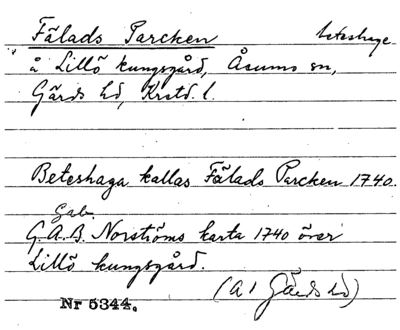 Fälads Parcken beteshage.
å Lillö kungsgård, Åsums sn,
Gärds hd, Krstd. l.
Beteshaga kallas Fälads Parcken 1740.
Gab.
G.A.B. Norströms karta 1740 över
Lillö kungsgård.
(A 1 Gärds hd)
Nr 5344.